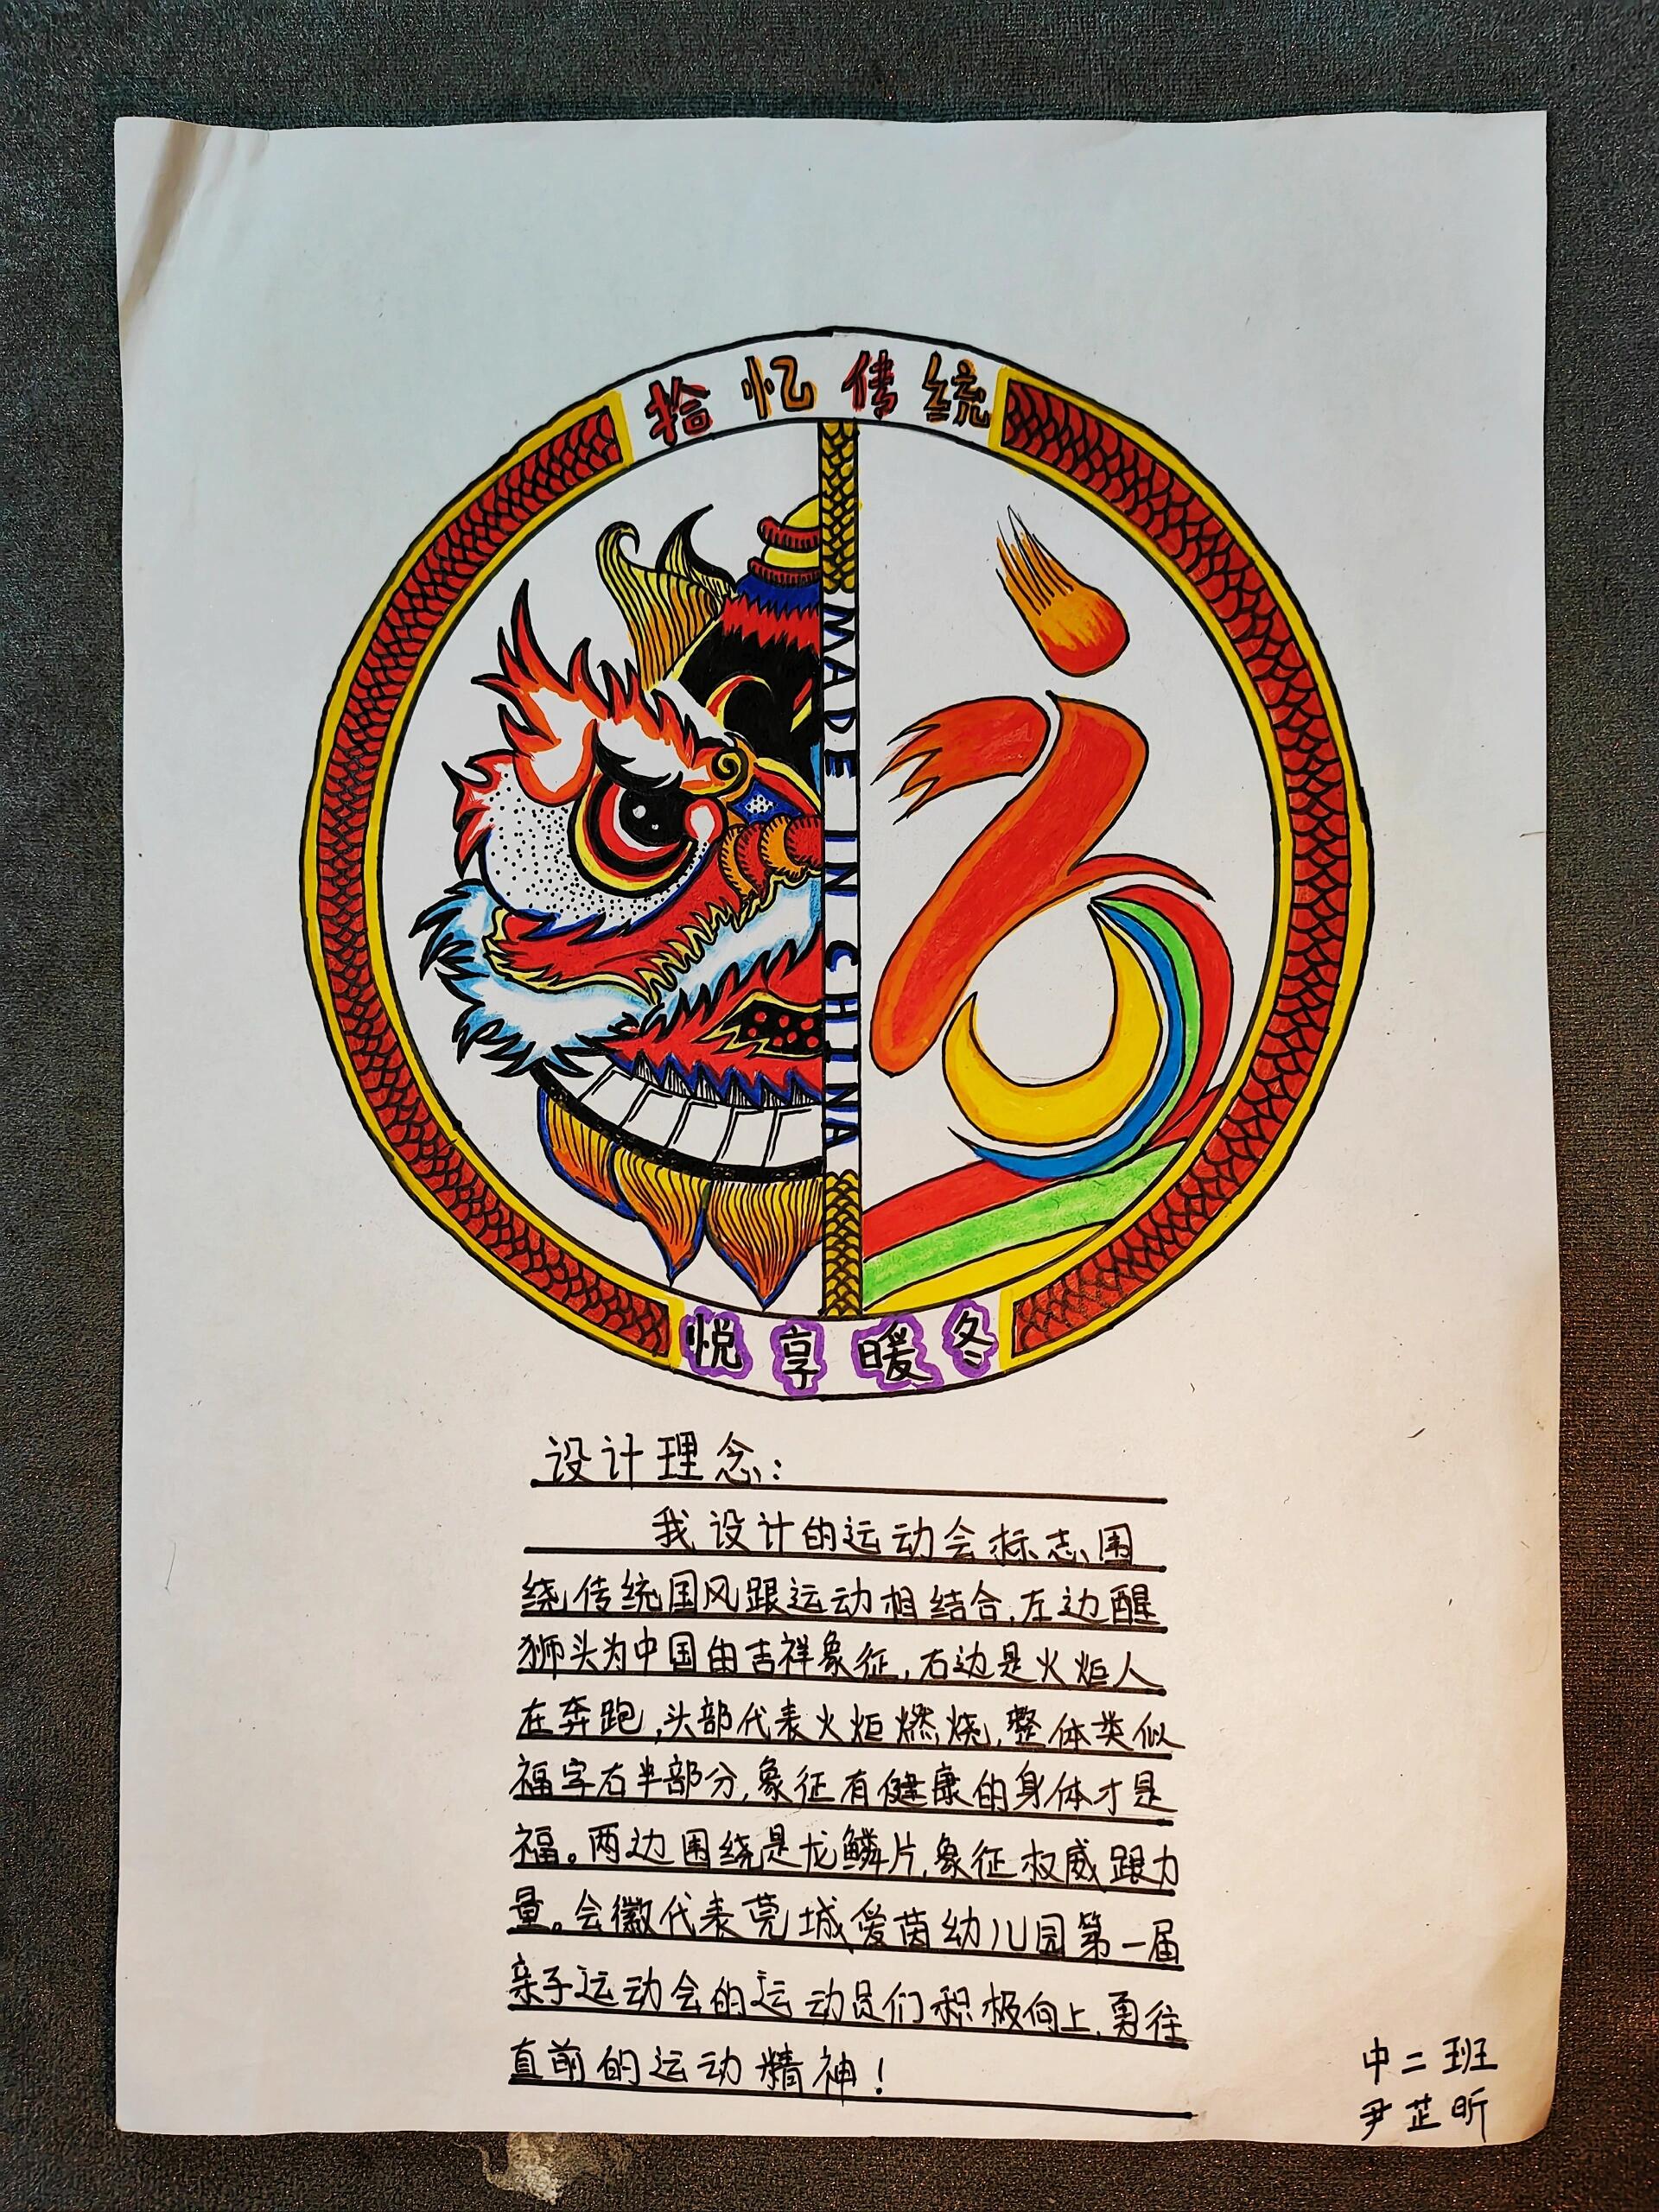 拾忆传统
MADE IN CHINA
悦享暖冬
设计理念:
我设计的运动会标志围
绕传统国风跟运动相结合,左边醒
狮头为中国由吉祥象征,右边是火炬人
在奔跑,头部代表火炬燃烧,整体类似
福字右半部分,象征有健康的身体才是
福。两边围绕是龙鳞片,象征权威跟力
量。会徽代表莞城爱茵幼儿园第一届
亲子运动会的运动员们积极向上,勇往
直前的运动精神!
中二班
尹芷昕